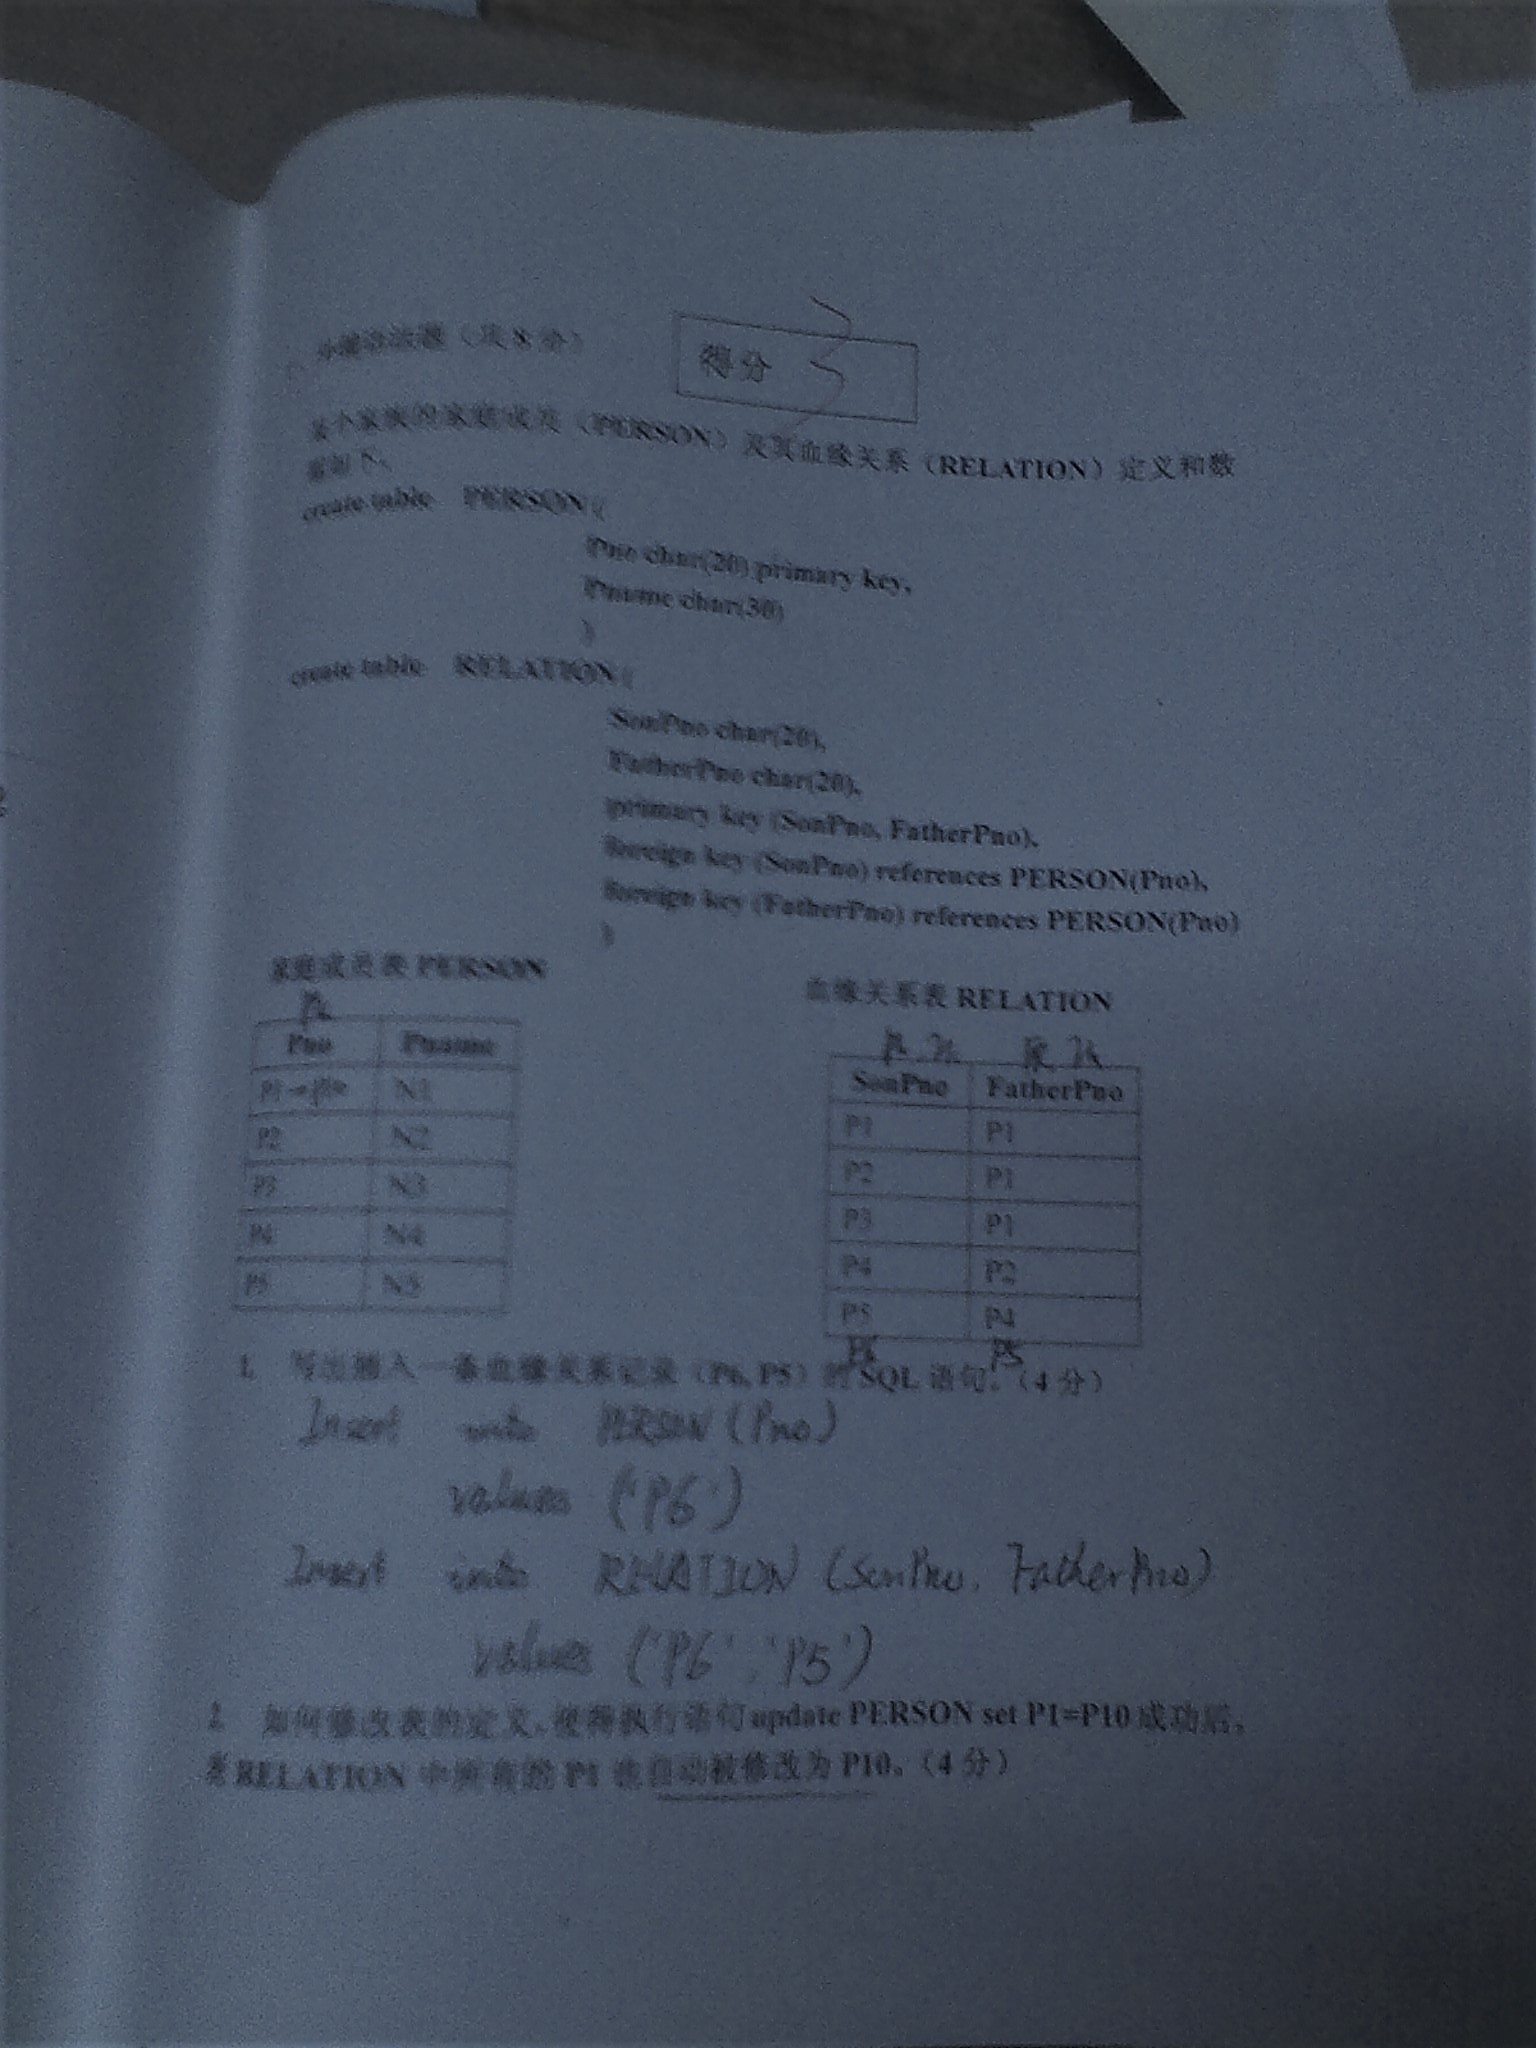 （共8分）
得分
某个家族的家庭成员（PERSON）及其血缘关系（RELATION）定义和数
据如下。
create table PERSON(
Pno char(20) primary key,
Pname char(30)
)
create table RELATION(
SonPno char(20),
FatherPno char(20),
primary key (SonPno, FatherPno),
foreign key (SonPno) references PERSON(Pno),
foreign key (FatherPno) references PERSON(Pno)
)
家庭成员表 PERSON
血缘关系表 RELATION
Pno Pname
P1 N1
P2 N2
P3 N3
P4 N4
P5 N5
SonPno FatherPno
P1 P1
P2 P1
P3 P1
P4 P2
P5 P4
P6 P5
1. 写出插入一条血缘关系记录（P6, P5）的 SQL 语句。（4 分）
Insert into PERSON (Pno)
values ('P6')
Insert into RELATION (SonPno, FatherPno)
values ('P6', 'P5')
2. 如何修改表的定义，使得执行语句 update PERSON set P1=P10 成功后，
表 RELATION 中所有的 P1 也自动被修改为 P10。（4 分）